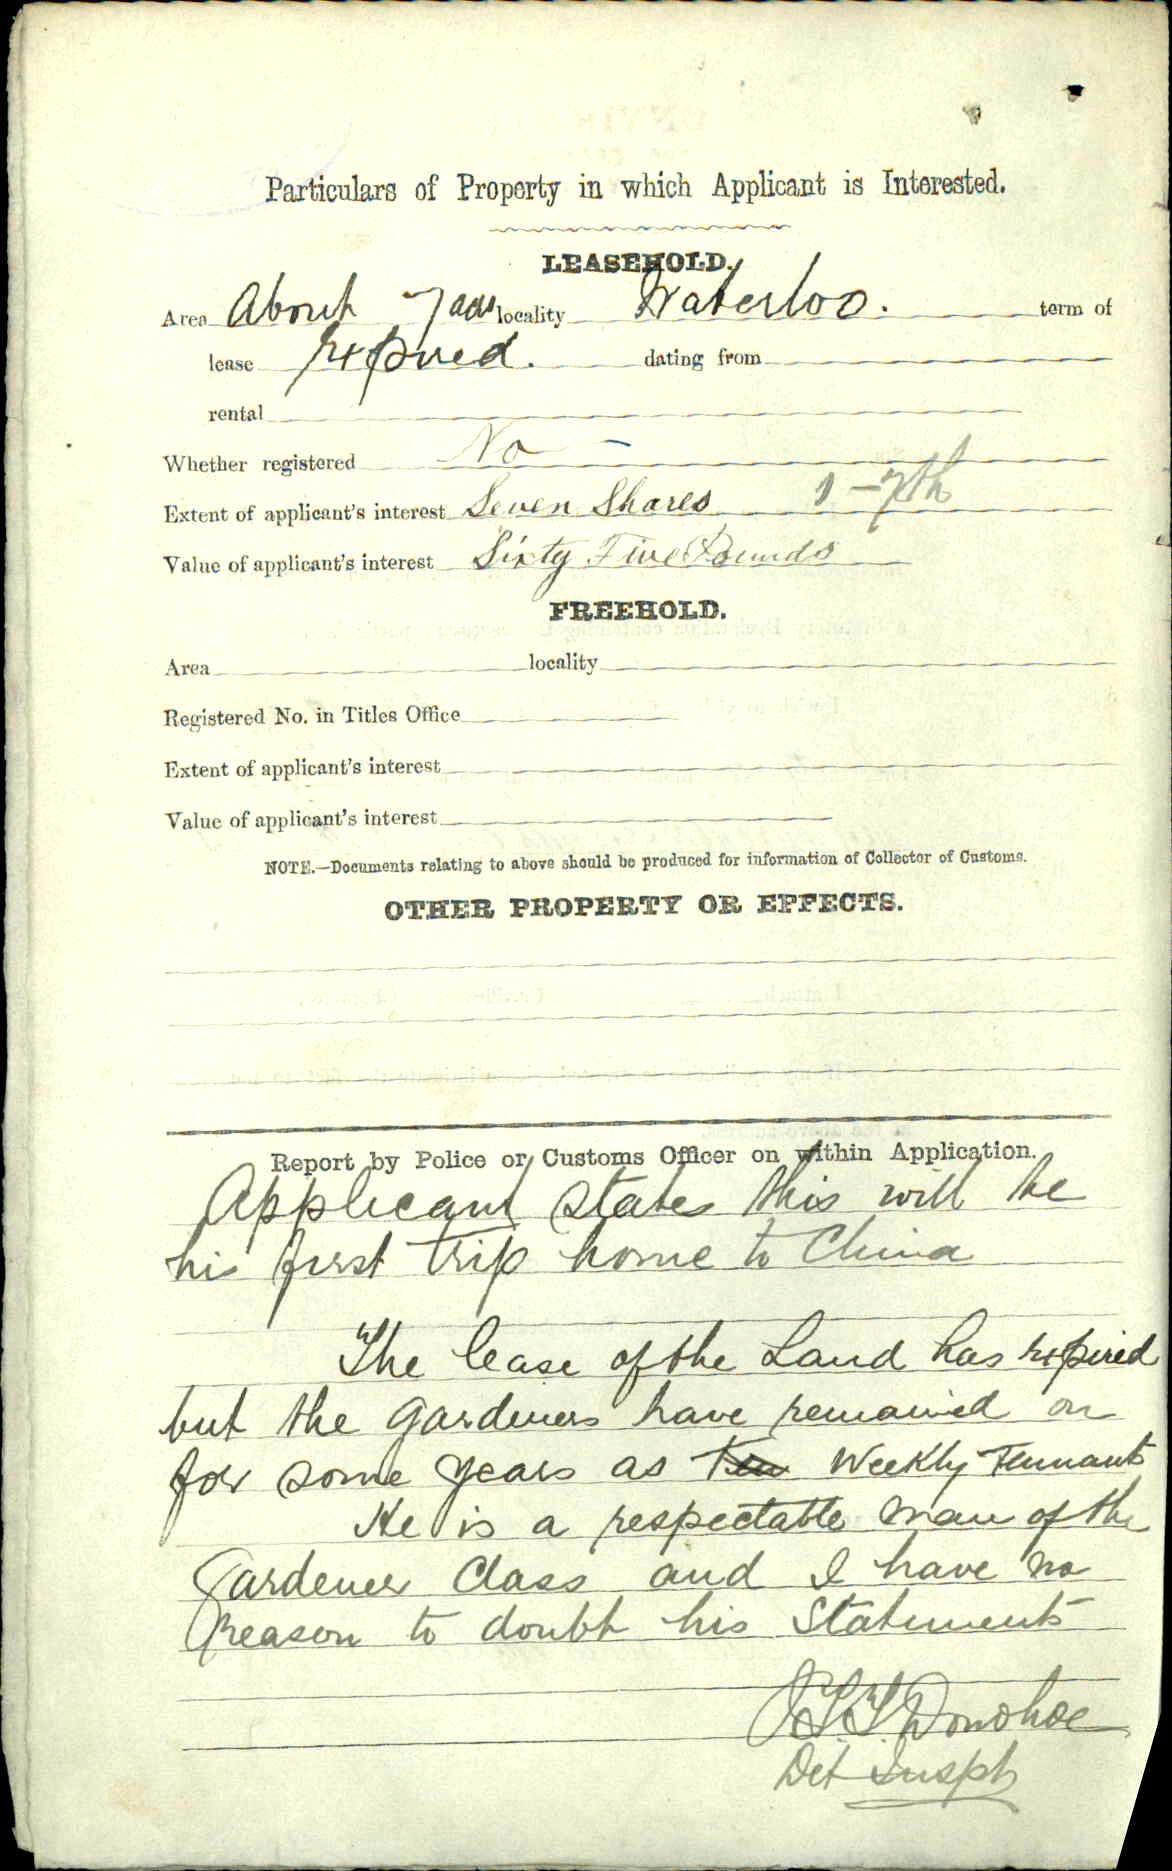 Particulars of Property in which Applicant is Interested.
LEASEHOLD.
Area About 7 acrs locality Waterloo. term of
lease Expired. dating from
rental
Whether registered No
Extent of applicant's interest Seven Shares 1-7th
Value of applicant's interest Sixty Five Pounds
FREEHOLD.
Area locality
Registered No. in Titles Office
Extent of applicant's interest
Value of applicant's interest
NOTE.—Documents relating to above should be produced for information of Collector of Customs.
OTHER PROPERTY OR EFFECTS.
Report by Police or Customs Officer on within Application.
Applicant states this will be
his first trip home to China
The lease of the Land has expired
but the gardeners have remained on
for some years as Ten Weekly Tennants
He is a respectable man of the
Gardener Class and I have no
reason to doubt his Statements
Donohoe
Det Inspt